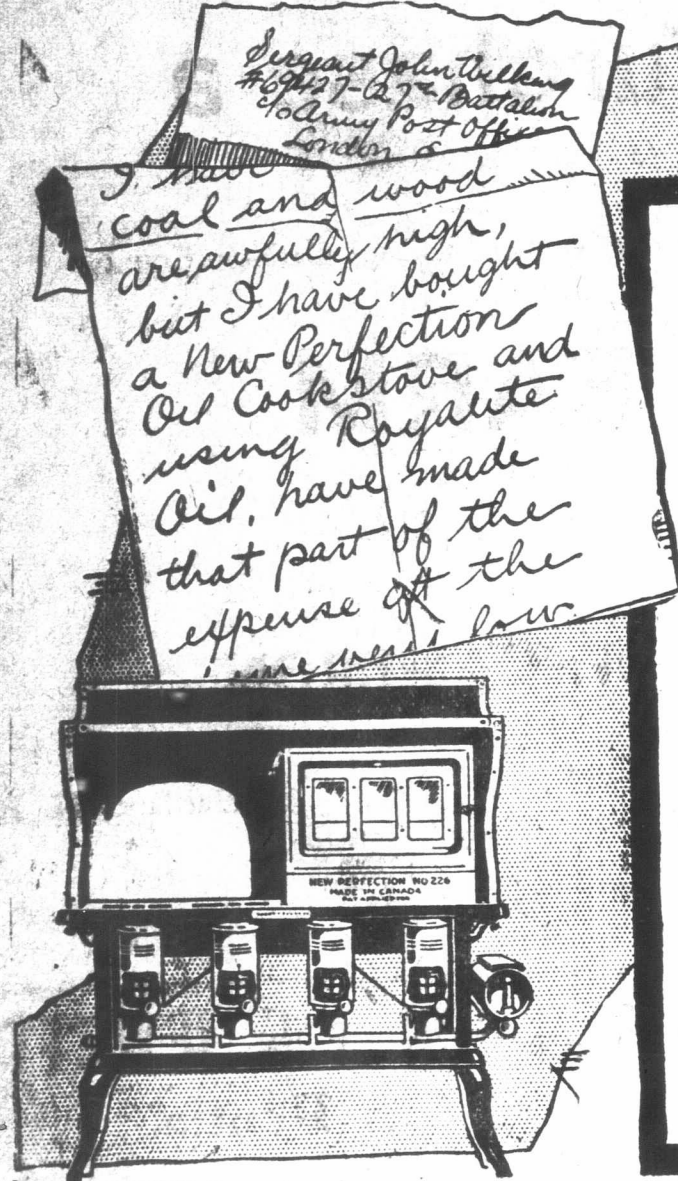 Sergeant John Wilkins
#69427-127th Battalion
c/o Army Post Office
London
I have
coal and wood
are awfully high,
but I have bought
a New Perfection
Oil Cookstove and
using Royalite
Oil, have made
that part of the
expense at the
very low
NEW PERFECTION NO 226
MADE IN CANADA
PAT APPLIED FOR